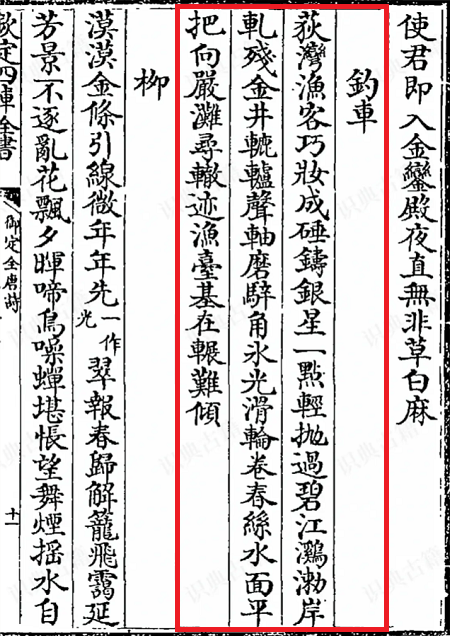 使君即入金鑾殿夜直無非草白麻
釣車
荻灣漁客巧妝成硾鑄銀星一點輕拋過碧江鸂鶒岸
軋殘金井轆轤聲軸磨騂角冰光滑輪卷春絲水面平
把向嚴灘尋轍迹漁臺基在輾難傾
柳
漠漠金條引線微年年先一作光翠報春歸解籠飛靄延
芳景不逐亂花飄夕暉啼鳥噪蟬堪悵望舞煙搖水自
欽定四庫全書
御定全唐詩
十一